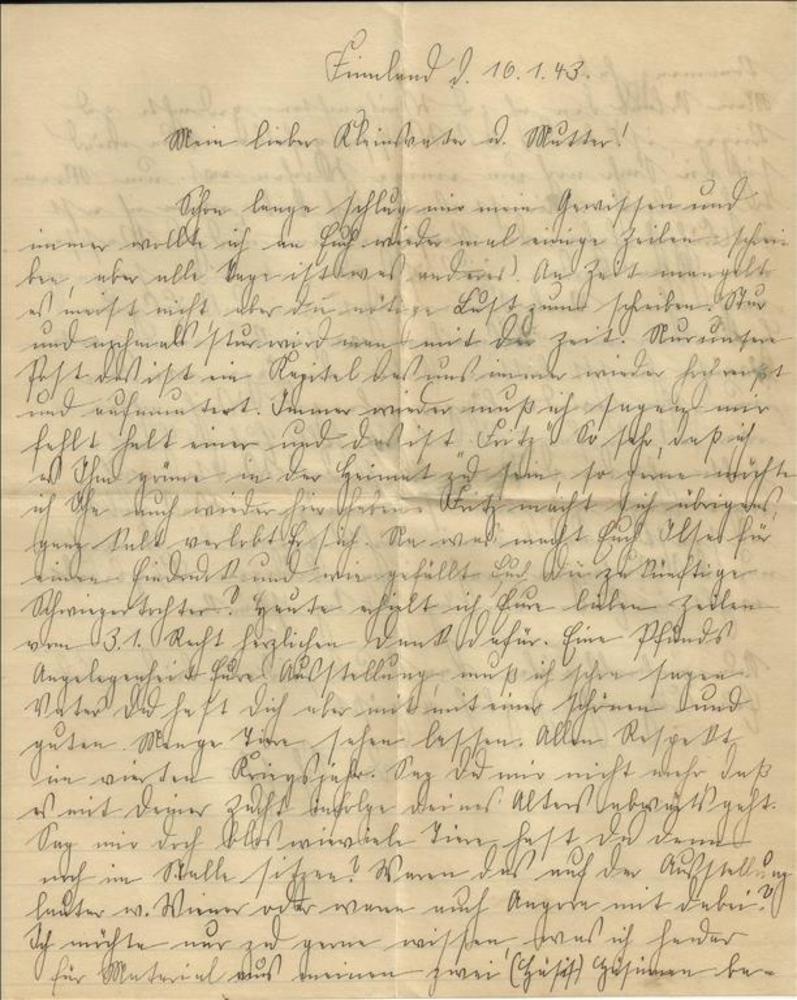 Finnland d. 10.1.43.
Mein lieber Kleinvater u. Mutter!
Schon lange schlug mir mein Gewissen und
immer wollte ich an Euch wieder mal einige Zeilen schrei-
ben, aber alle Tage ist was anderes. An Zeit mangelt
es meist nicht aber die nötige Lust zum schreiben. Stur
und nochmals stur wird man mit der Zeit. Nur unsere
Post das ist ein Kapitel das uns immer wieder hochreißt
und aufmuntert. Immer wieder muß ich sagen mir
fehlt halt einer und das ist Fritz. So sehr, daß ich
es Ihm gönne in der Heimat zu sein, so gerne möchte
ich Ihn auch wieder hier haben. Fritz macht sich übrigens,
ganz kalt verlobt Er sich. Na was macht Euch Ilse für
einen Eindruck und wie gefällt Euch die zukünftige
Schwiegertochter? Heute erhielt ich Eure lieben Zeilen
vom 3.1. Recht herzlichen Dank dafür. Eine Pfunds
Angelegenheit Eure Ausstellung muß ich schon sagen.
Vater Du hast Dich aber mit einer schönen und
guten Menge Tiere sehen lassen. Allen Respekt
im vierten Kriegsjahr. Sag Du mir nicht mehr daß
es mit Deiner Zucht infolge deines Alters abwärts geht.
Sag mir doch blos wieviele Tiere hast Du denn
noch im Stalle sitzen? Waren das auf der Ausstellung
lauter w. Wiener oder waren auch Angora mit dabei?
Ich möchte nur zu gerne wissen, was ich
für Material aus meinen zwei (Häsi) Häsinnen be-